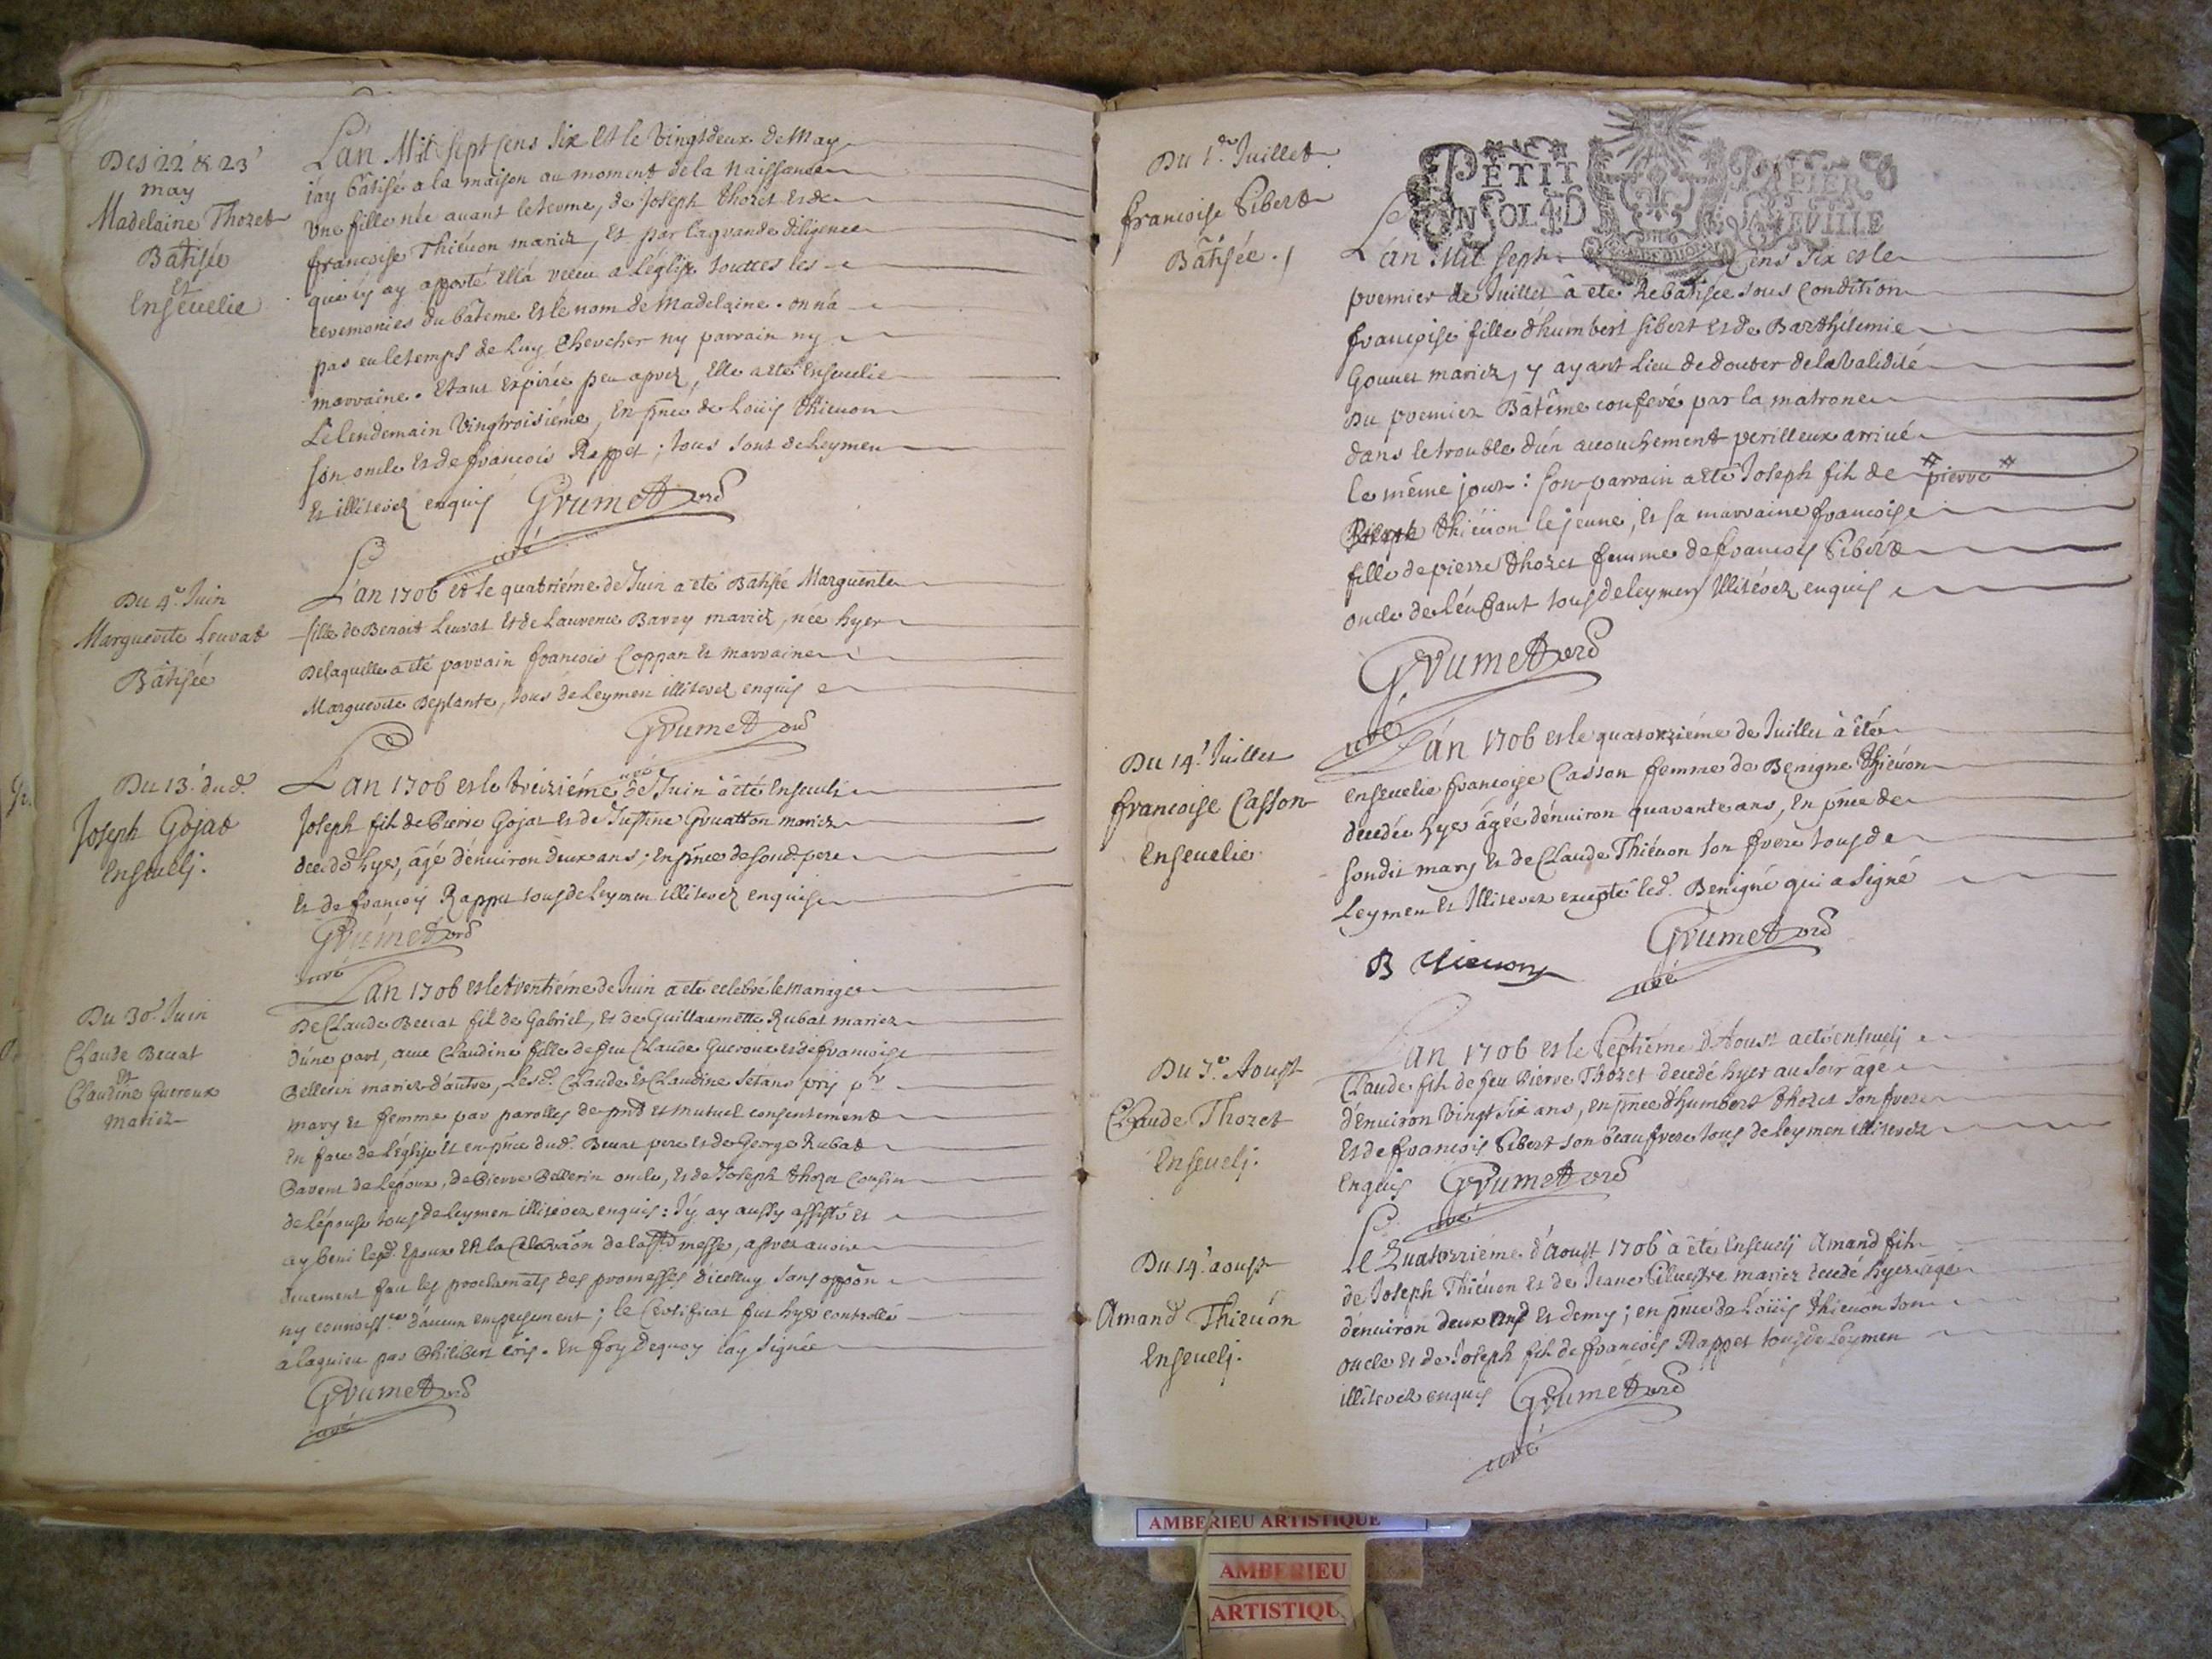 Des 22 & 23
may
Madelaine Thozet
Batisée
et
Enseuelie
L'an Mil sept cens six et le vingtdeux de May
i'ay bâtisé a la maison au moment de la naissance
une fille née auant le terme, de Joseph thozet et de
françoise Thiéuon mariez, et par la grande diligence
que i'y ay apporté ella receu a l'église touttes les
ceremonies du batéme et le nom de Madelaine. on n'a
pas eu le temps de luy chercher ny parrain ny
marraine. Etant expirée peu aprez, elle a eté enseuelie
Le lendemain vingtroisiéme, en pnce de Loüis thieuon
son oncle et de françois Rappet; tous sont de Leymen
et illiterez enquis Grumet
curé
Du 4e Juin
Marguerite Leuvat
Bâtisée
L'an 1706 et le quatriéme de Juin a eté Batisée Marguerite
fille de Benoit Leuvat et de Laurence Barry mariez, née hyer
De laquelle a été parrain françois Coppan et marraine
Marguerite Deplante, tous de Leymen illiterez enquis
Grumet
curé
Du 13e dud.
Joseph Gojat
Enseueli.
L'an 1706 et le treiziéme de Juin a eté Enseueli
Joseph fils de Pierre Gojat et de Justine Gruatton mariez
decedé hyer, âgé d'enuiron deux ans; en pnce de sond. pere
et de françois Rappet tous de Leymen illiterez enquis
Grumet
curé
Du 30e Juin
Claude Beccat
et
Claudine Gueroux
mariez
L'an 1706 et le trentiéme de Juin a eté celebré le mariage
De Claude Beccat fils de Gabriel, et de Guillaumette Rubat mariez
d'úne part, auec Claudine fille de feu Claude Gueroux et de françoise
Bellerin mariez d'autre, Lesd. Claude et Claudine s'étans pris pr
mary et femme par parolles de pnt et mutuel consentement
en face de l'église et en pnce dud. Beccat pere et de George Rubat
Parent de l'epoux, de Pierre Bellerin oncle, et de Joseph thozet cousin
de l'épouse tous de Leymen illiterez enquis: J'y ay aussy assisté et
ay beni lesd. Epoux En la celebraon de la ste messe, aprez auoir
deuement fait les proclamats des promesses d'icelluy sans oppon
ny connoissce d'aucun empeschement; le Certificat fut hyer controllé
a Lagnieu par Philibert. En foy dequoy i'ay signé
Grumet
curé
Du 1er Juillet
françoise Sibert
Bâtisée.
PETIT PAPIER
UN SOL 4D LA FEVILLE
L'an Mil sept cens six et le
premier de Juillet a eté Rebatisée sous condition
françoise fille d'humbert sibert et de Barthélemie
Gouuet mariez, y ayant lieu de douter de la validité
du premier Bâtême conferé par la matrone
dans le trouble d'un accouchement perilleux arriué
le même jour: son parrain a eté Joseph fils de # pierre #
thieuon le jeune, et sa marraine françoise
fille de pierre thozet femme de françois Sibert
oncle de l'enfant tous de Leymen illiterez enquis
Grumet
curé
Du 14e Juillet
françoise Casson
Enseuelie
L'an 1706 et le quatorziéme de Juillet a eté
enseuelie françoise Casson femme de Benigne thiéuon
decedée hyer âgée d'enuiron quarante ans, en pnce de
sondit mary et de Claude Thiéuon son frere tous de
Leymen et Illiterez excepté led. Benigne qui a signé
B thieuon
Grumet
curé
Du 7e Aoust
Claude Thozet
Enseueli.
L'an 1706 et le Septiéme d'Aoust a eté enseueli
Claude fils de feu Pierre Thozet decedé hyer au soir âgé
d'enuiron vingt six ans, en pnce d'humbert thozet son frere
et de françois Sibert son beaufrere tous de Leymen illiterez
enquis Grumet
curé
Du 14e aoust
Amand Thieuon
Enseueli.
Le Quatorziéme d'Aoust 1706 a eté Enseueli Amand fils
de Joseph Thiéuon et de Jeane Siluestre mariez decedé hyer âgé
d'enuiron deux ans et demy; en pnce de Loüis thieuon son
oncle et de Joseph fils de françois Rappet tous de Leymen
illiterez enquis Grumet
curé
AMBERIEU ARTISTIQUE
AMBERIEU
ARTISTIQU